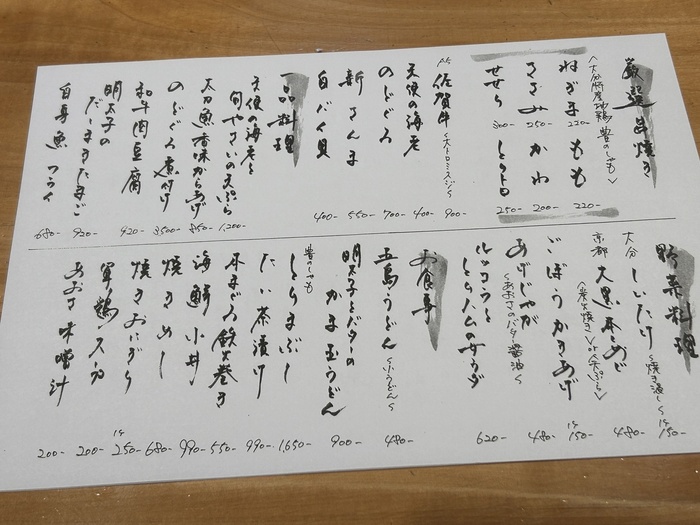 厳選串焼き
〈大分県産地鶏 豊のしゃも〉
ねぎま 220-
もも 220-
ささみ 250-
かわ 200-
せせり 300-
とろトロ 250-
佐賀牛 〈大トロミスジ〉 900-
天使の海老 400-
のどぐろ 700-
新さんま 550-
白バイ貝 400-
一品料理
天使の海老と旬やさいの天ぷら 1,200-
太刀魚香味からあげ 850-
のどぐろ煮付け 3,500-
和牛肉豆腐 920-
明太子のだしまきたまご 920-
白身魚フライ 680-
野菜料理
大分 しいたけ 〈焼き浸し〉 1ケ 150-
京都 大黒本しめじ 〈炭火焼き or 天ぷら〉 480-
ごぼうかきあげ 1ケ 150-
あげじゃが 〈あおさのバター醤油〉 480-
ルッコラと生ハムのサラダ 620-
お食事
五島うどん 〈小うどん〉 480-
明太子とバターのかま玉うどん 900-
豊のしゃも とりまぶし 1,650-
たい茶漬け 990-
本まぐろ鉄火巻き 550-
海鮮小丼 990-
焼きめし 680-
焼きおにぎり 1ケ 250-
軍鶏スープ 200-
あおさ味噌汁 200-